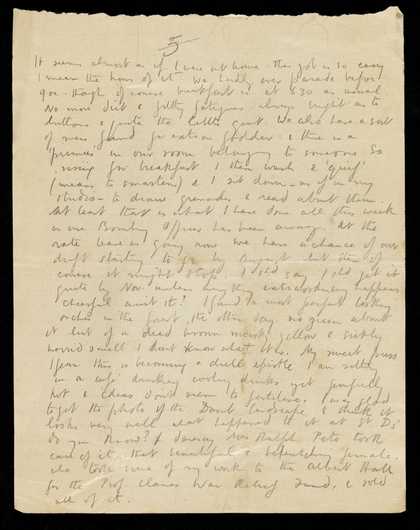 5
It seems almost as if I were at home - the job is so easy
I mean the hours of it. We hardly ever parade before
9 oc - though of course breakfast is at 8.30 as usual
No more dirt & petty fatigues - always bright as to
buttons & quite the little gent. We also have a sort
of mess found for us &
'primus' in our room belonging to someone. So
rising for breakfast I then wash &
(means to smarten) & I sit down - as if in my
studio - to draw grenades & read about them.
At least that is what I have done all this week
as our Bombing Officer has been away. At the
rate leave is going now we have a chance of our
draft starting to go by August but then of
course it might stop. I shd say I shd get it
quite by Nov. unless anything extraordinary happens
cheerful aint it? I found a most perfect looking
orchis in the forest the other day. no green about
it but of a dead brown & yellow & sickly
horrid smell I dont know what it is. My sweet
I fear this is becoming a dull epistle I am sitting
in a café drinking cooling drinks yet
hot & ideas dont seem to fertilize. I was glad
to get the photo of the Dorset landscape & think it
looks very well. What happened to it at St
do you know? I Mrs Ralph Peto took
care of it, that beautiful & bewitching female.
also took some of my work to the Albert Hall
for the Prof. Classes War Relief Fund, & sold
all of it.